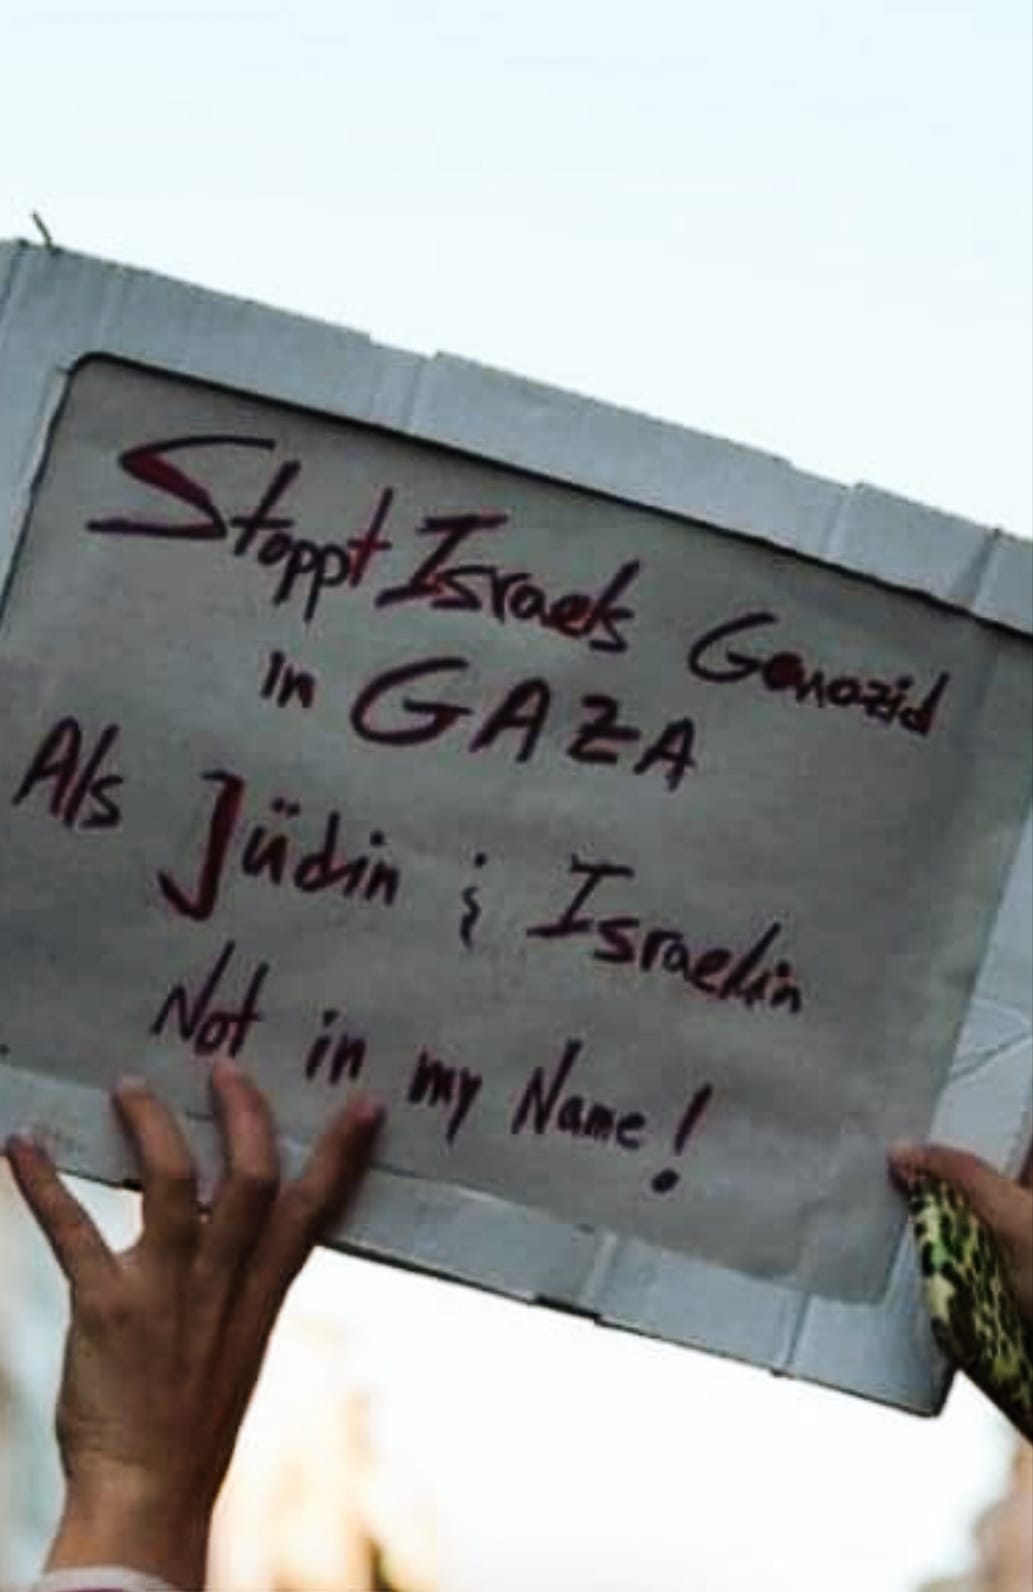 Stoppt Israels Genozid
in GAZA
Als Jüdin & Israelin
Not in my Name!